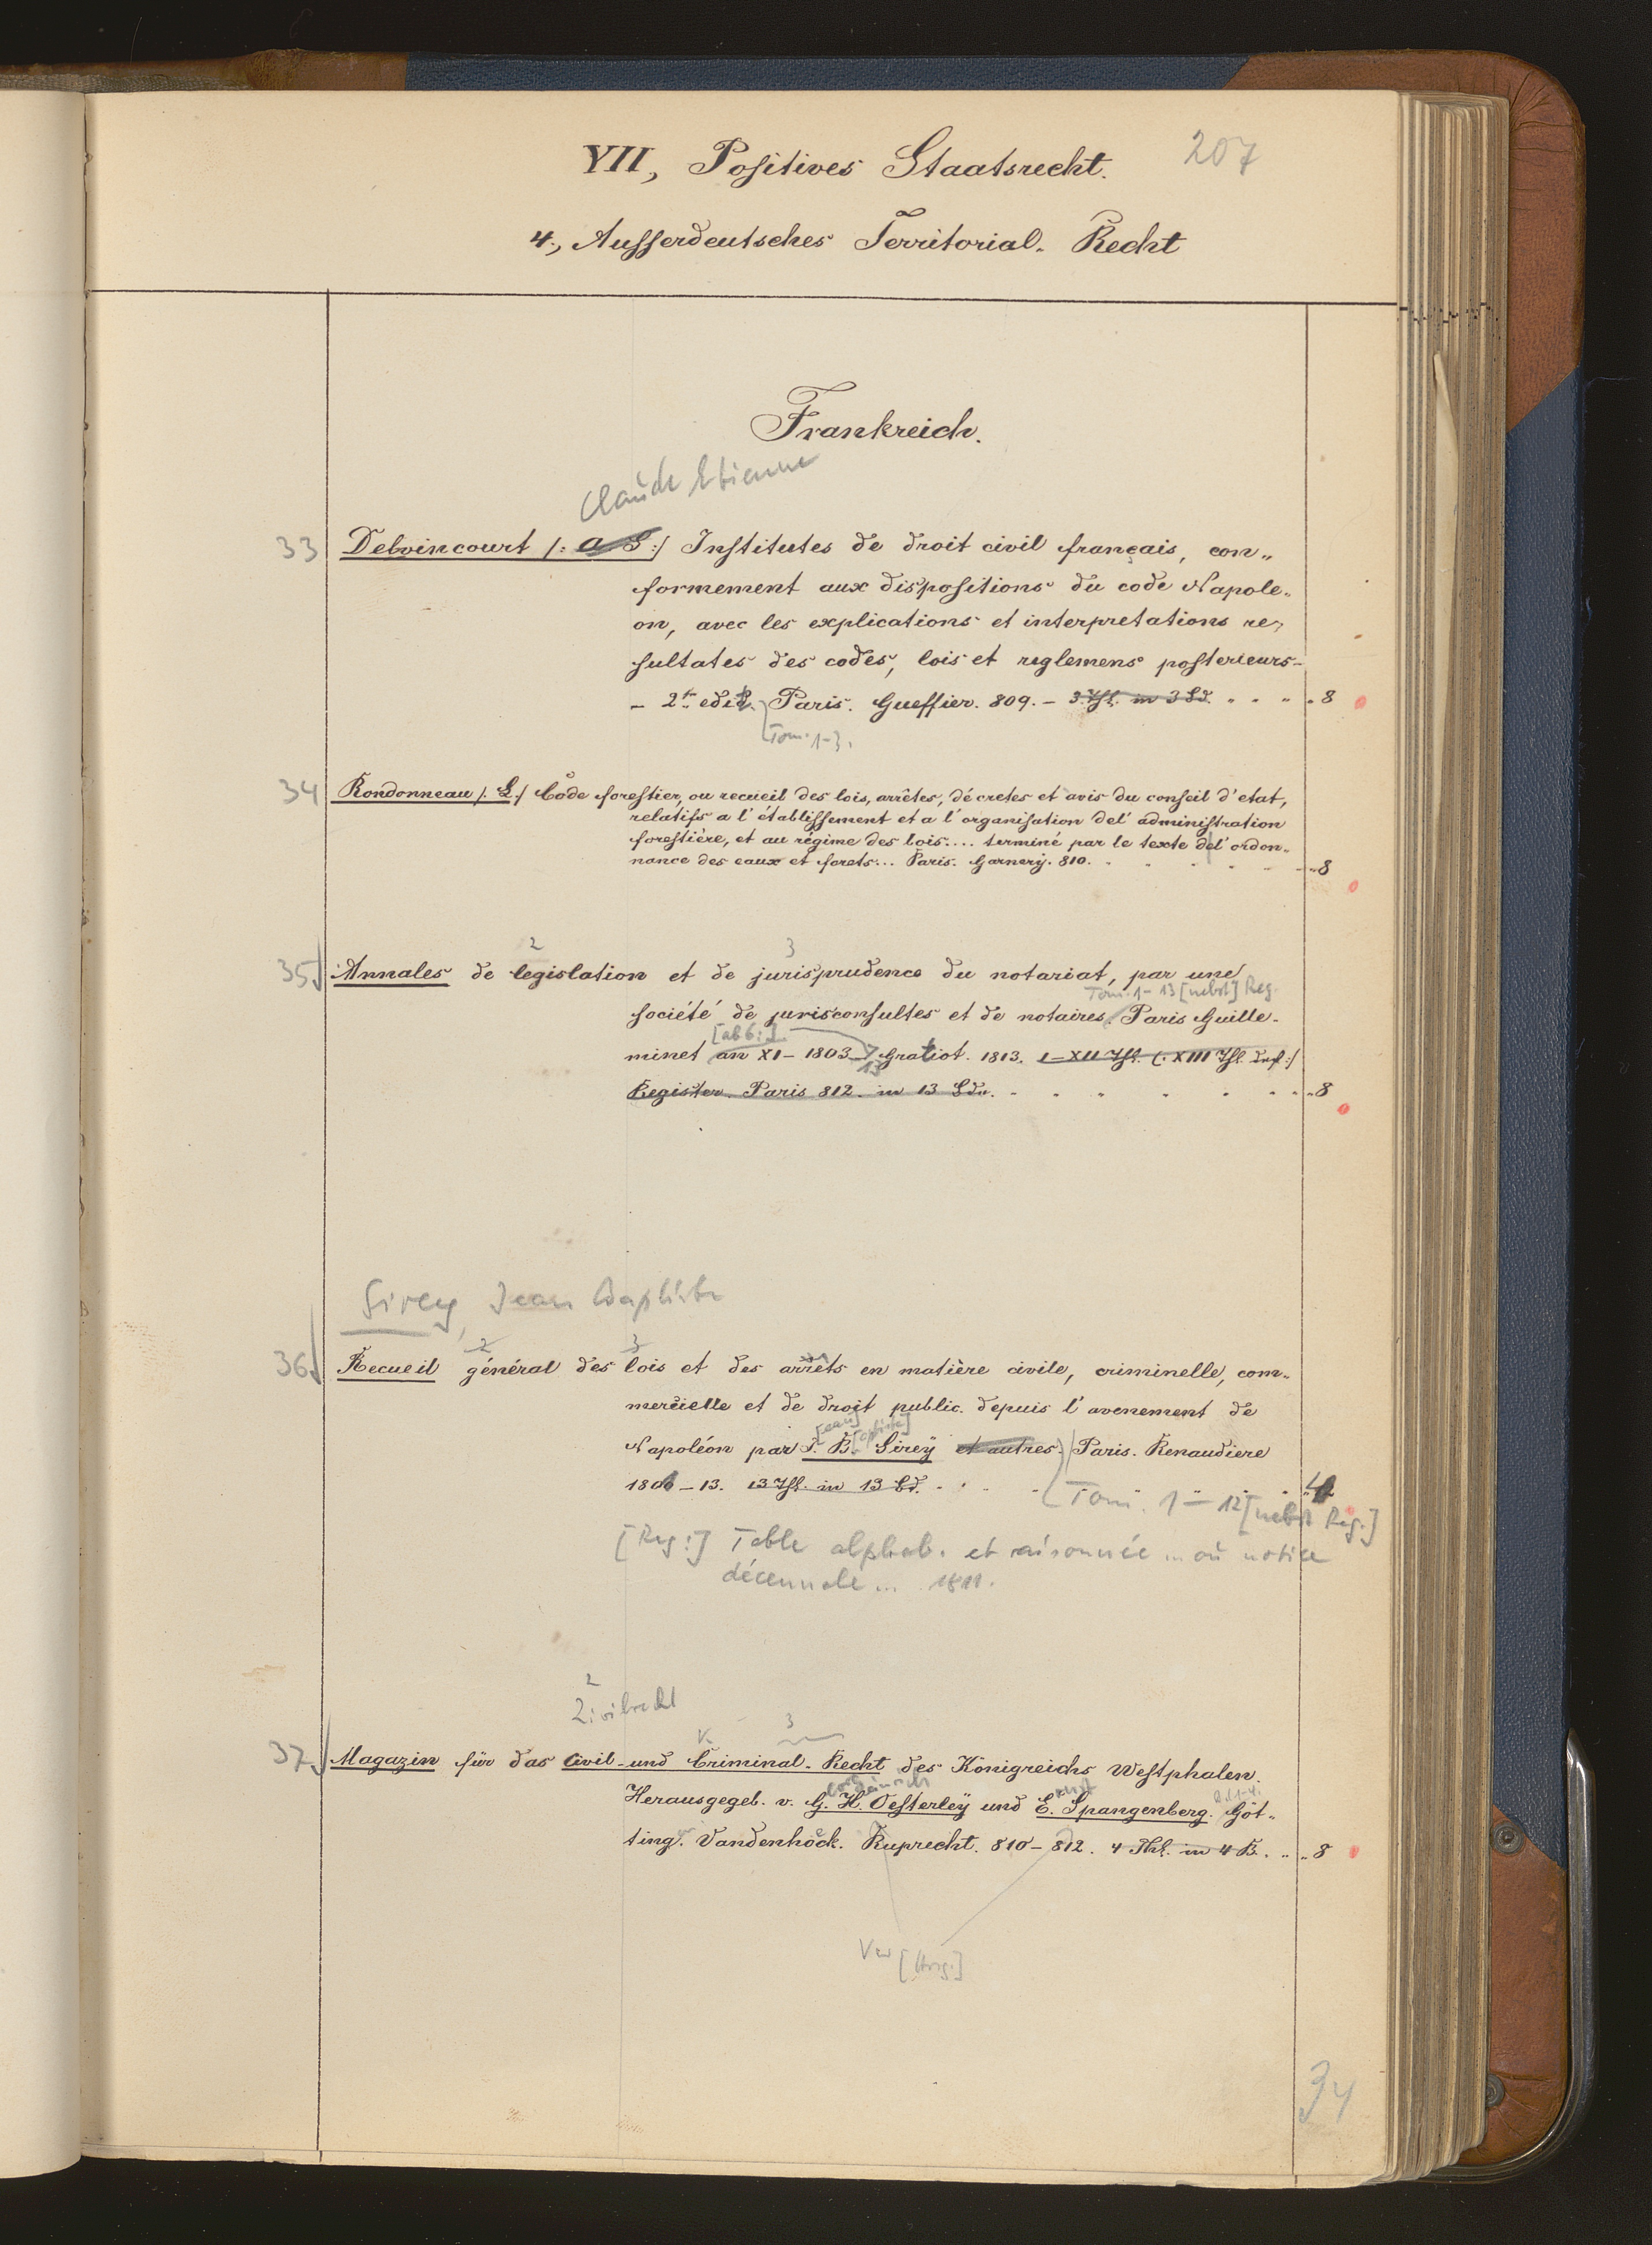 207
VII, Positives Staatsrecht.
4., Ausserdeutsches Territorial- Recht
Frankreich.
Claude Etienne
33 Delvincourt /: a S :/ Institutes de droit civil français, con„
formement aux dispositions du code Napole„
on, avec les explications et interpretations re„
sultates des codes, lois et reglemens posterieurs-
- 2te edit. Paris. Gueffier. 809. - 3 Thl. in 3 Bd. „ 8
Tom. 1-3.
34 Rondonneau /. L./ Code forestier, ou recueil des lois, arrêtes, décretes et avis du conseil d'etat,
relatifs a l'établissement et a l'organisation del' administration
forestière, et au régime des lois.... terminé par le texte del' ordon„
nance des eaux et forets... Paris. Garnery. 810. „ 8
2 3
35 Annales de legislation et de jurisprudence du notariat, par une
Tom. 1-13 [nebst] Reg.
société de jurisconsultes et de notaires. Paris Guille-
[ab 6:]
minet an XI - 1803 - Gratiot. 1813. I-XII Thl. (: XIII Thl. :/
13
Register. Paris 812. in 13 Bdn. „ 8
Sirey, Jean Baptiste
2 3
36 Recueil général des lois et des arrêts en matière civile, criminelle, com„
mercielle et de droit public. depuis l'avenement de
[ean] [aptiste]
Napoléon par J. B. Sireÿ et autres. Paris. Renaudiere
1806 - 13. 13 Thl. in 13 Bd. „ 4
Tom. 1 - 12 [nebst Reg.]
[Reg:] Table alphab. et raisonnée ... ou notice
décennale ... 1811.
2
Zivilrecht
K 3
37 Magazin für das Civil- und Criminal- Recht des Königreichs Westphalen.
Herausgegeb. v. G. H. Oesterleÿ und E. Spangenberg. Göt„
Bd. 1-4.
ting. Vandenhöck. Ruprecht. 810 - 812. 4 Thl. in 4 B. „ 8
34